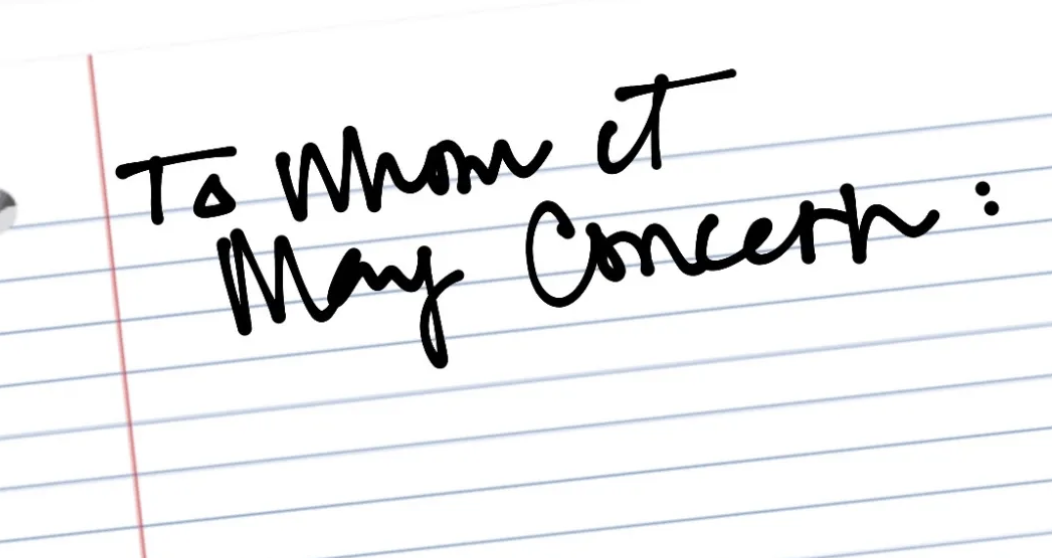 To Whom it
May Concern: